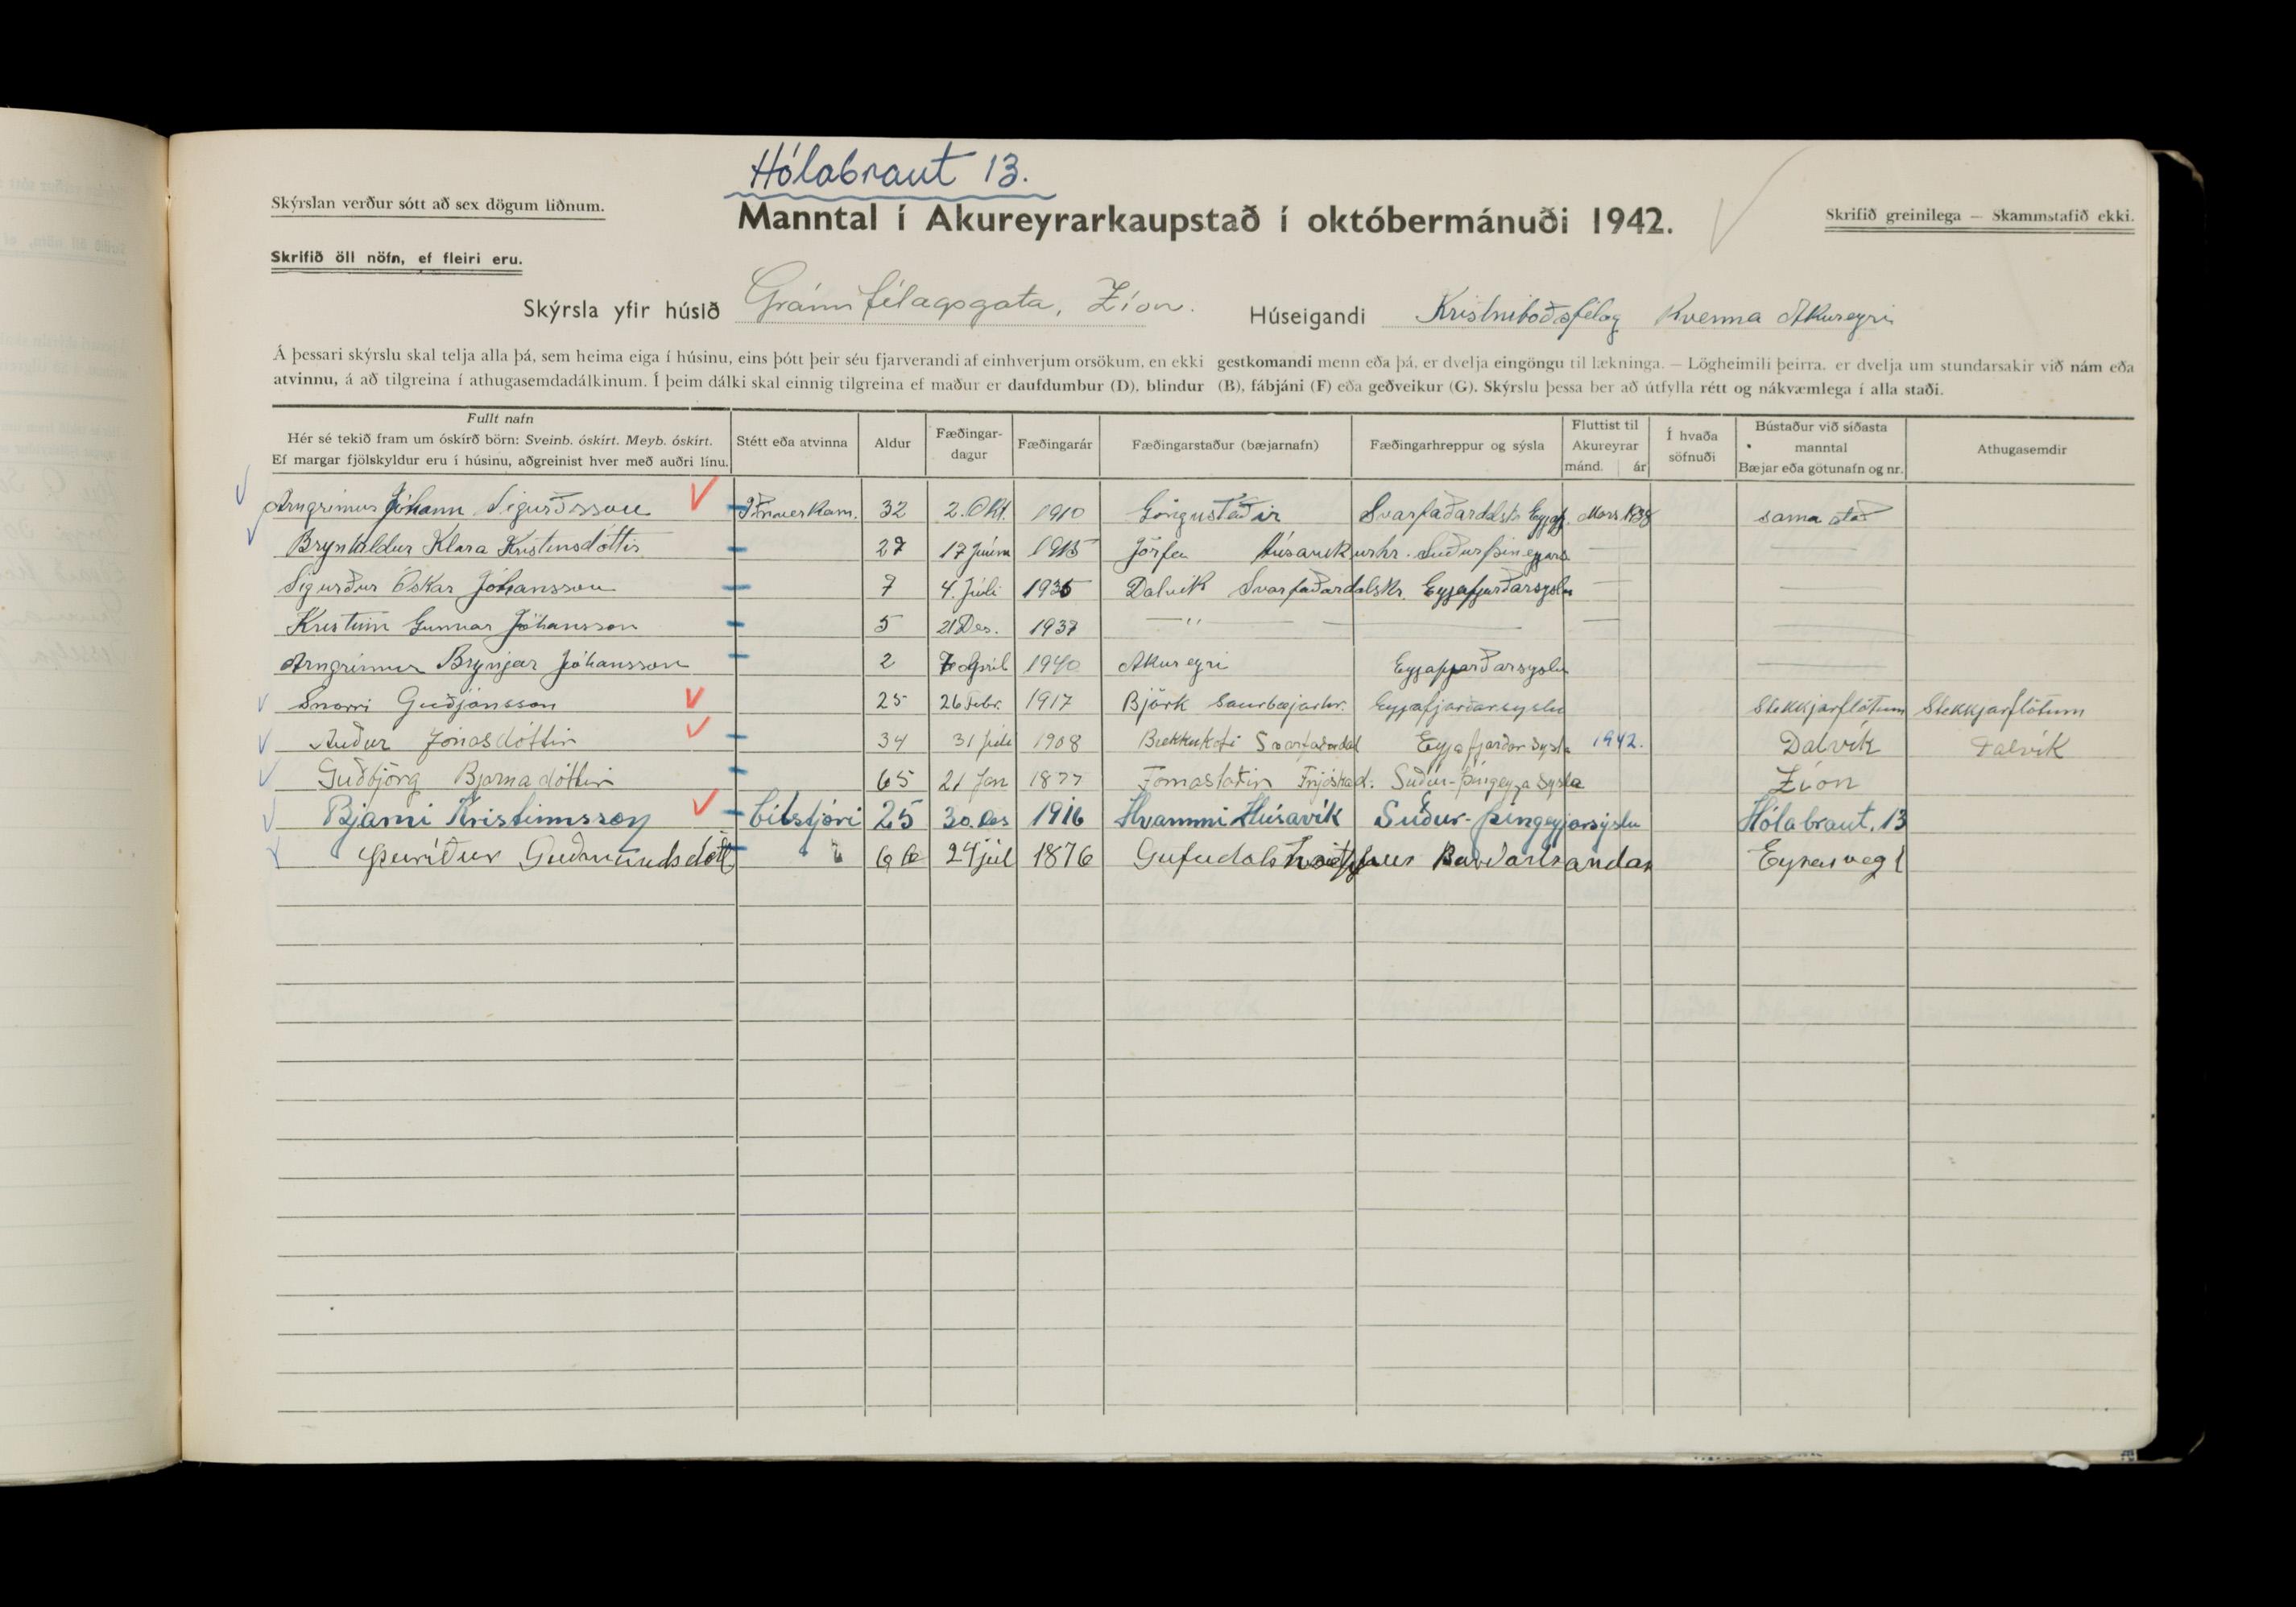 Hólabraut 13.
Skýrslan verður sótt að sex dögum liðnum.
Manntal í Akureyrarkaupstað í októbermánuði 1942.
Skrifið greinilega — Skammstafið ekki.
Skrifið öll nöfn, ef fleiri eru.
Skýrsla yfir húsið Gránufélagsgata, Zíon. Húseigandi Kristniboðsfélag Kvenna Akureyri
Á þessari skýrslu skal telja alla þá, sem heima eiga í húsinu, eins þótt þeir séu fjarverandi af einhverjum orsökum, en ekki gestkomandi menn eða þá, er dvelja eingöngu til lækninga. — Lögheimili þeirra, er dvelja um stundarsakir við nám eða
atvinnu, á að tilgreina í athugasemdadálkinum. Í þeim dálki skal einnig tilgreina ef maður er daufdumbur (D), blindur (B), fábjáni (F) eða geðveikur (G). Skýrslu þessa ber að útfylla rétt og nákvæmlega í alla staði.
Fullt nafn
Hér sé tekið fram um óskírð börn: Sveinb. óskírt. Meyb. óskírt.
Ef margar fjölskyldur eru í húsinu, aðgreinist hver með auðri línu.
Stétt eða atvinna
Aldur
Fæðingar-
dagur
Fæðingarár
Fæðingarstaður (bæjarnafn)
Fæðingarhreppur og sýsla
Fluttist til
Akureyrar
mánd. ár
Í hvaða
söfnuði
Bústaður við síðasta
manntal
Bæjar eða götunafn og nr.
Athugasemdir
Arngrímur Jóhann Sigurðsson 32 2. Okt. 1910 Göngustaðir Svarfaðardalshr Eyjaf. Mars 1938 sama stað
Brynhildur Klara Kristinsdóttir 27 17 Júní 1915 Jörfa Húsavikurhr. Suðurþingeyjars
Sigurður Óskar Jóhansson 7 4. Júli 1935 Dalvik Svarfaðardalshr. Eyjafjarðarsýslu
Kristinn Gunnar Jóhansson 5 21 Des. 1937 — " —
Arngrímur Brynjar Jóhansson 2 7 April 1940 Akureyri Eyjafjarðarsyslu
Snorri Guðjónsson 25 26 Febr. 1917 Björk Saurbæjarhr. Eyjafjarðarsyslu Stekkjarflötum Stekkjarflötum
Auður Jónasdóttir 34 31 júli 1908 Brekkukoti Svarfaðardal Eyjafjarðarsysla 1942. Dalvík Dalvík
Guðbjörg Bjarnadóttir 65 21 Jan 1877 Fnjóskad. Suður-Þingeyjasysla Zíon
Bjarni Kristinnsson bílstjóri 25 30. des 1916 Hvammi Húsavík Suður-þingeyjarsýslu Hólabraut. 13
Þuríður Guðmundsdótt " 66 24 júl 1876 Gufudals Barðastrandar Eyrarveg 1